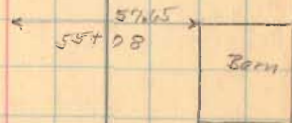 57.65
55+08
Barn